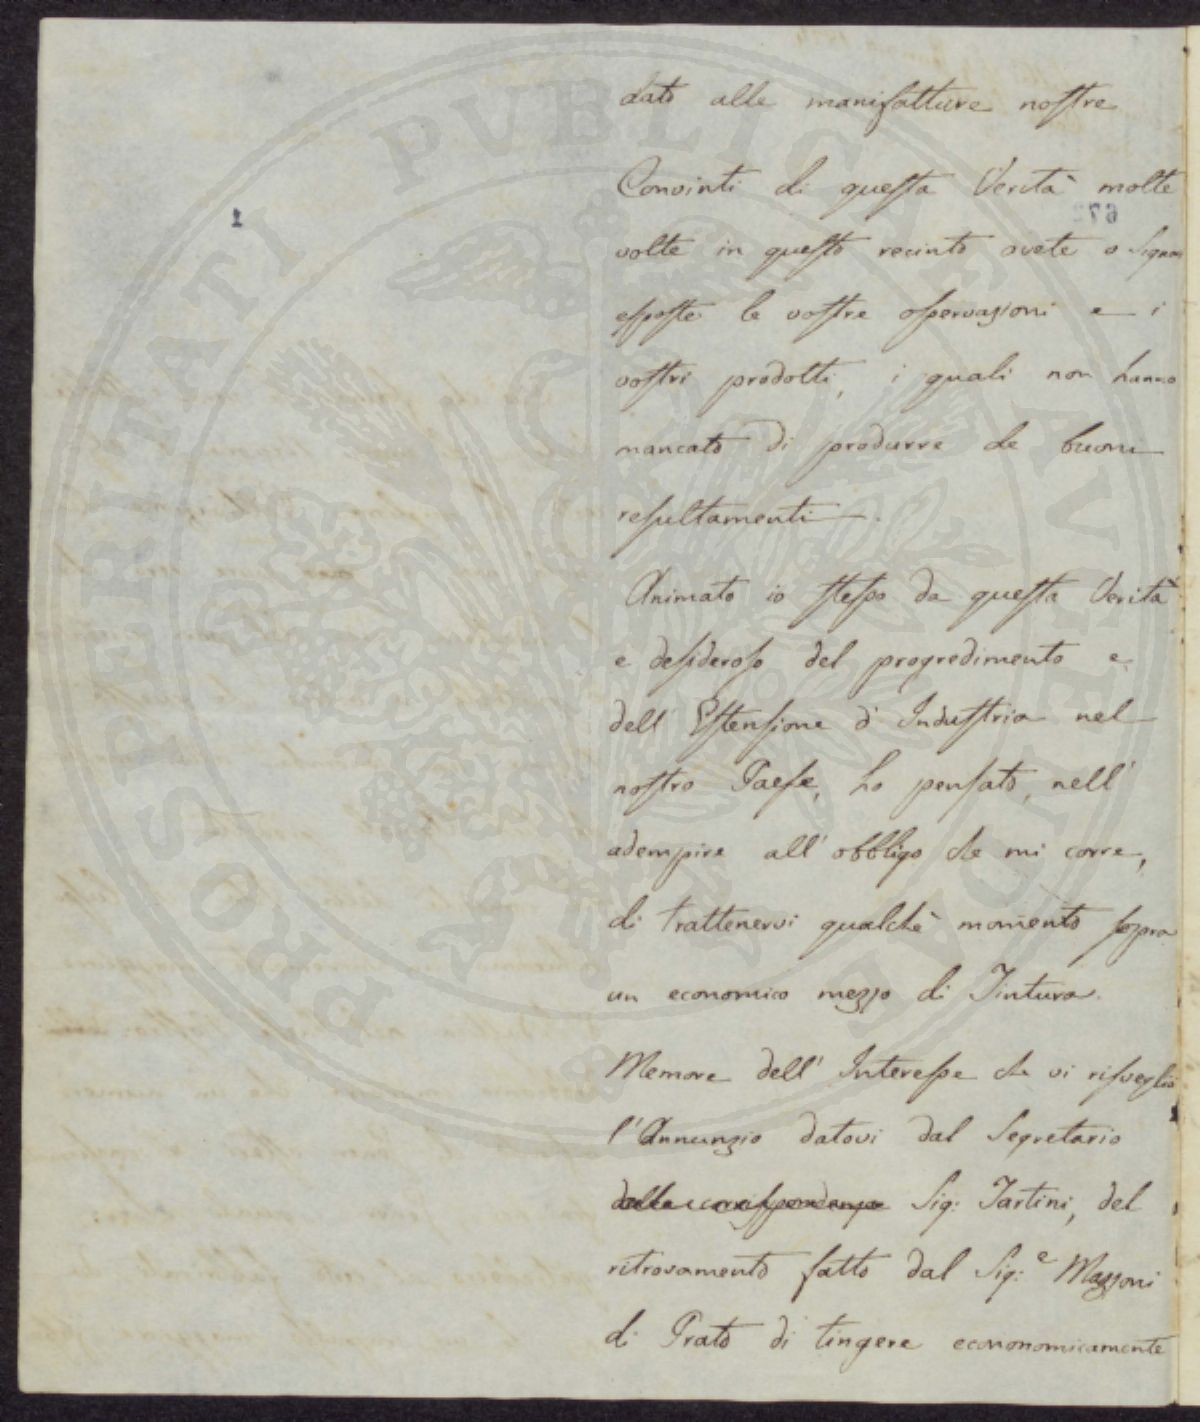 dato alle manifatture nostre
Convinti di questa Verità molte
volte in questo recinto avete o Signori
esposte le vostre osservazioni e i
vostri prodotti, i quali non hanno
mancato di produrre de buoni
resultamenti.
Animato io stesso da questa Verità
e desideroso del progredimento e
dell' Estensione d' Industria nel
nostro Paese, ho pensato, nell'
adempire all' obbligo che mi corre,
di trattenervi qualchè momento sopra
un economico mezzo di Tintura.
Memore dell' Interesse che vi risveglio
l'Annunzio datovi dal Segretario
delle corrispondenze Sig: Tartini, del
ritrovamento fatto dal Sig:e Mazzoni
di Prato di tingere econonomicamente
1
PROSPERITATI PUBLICAE AVGENDAE